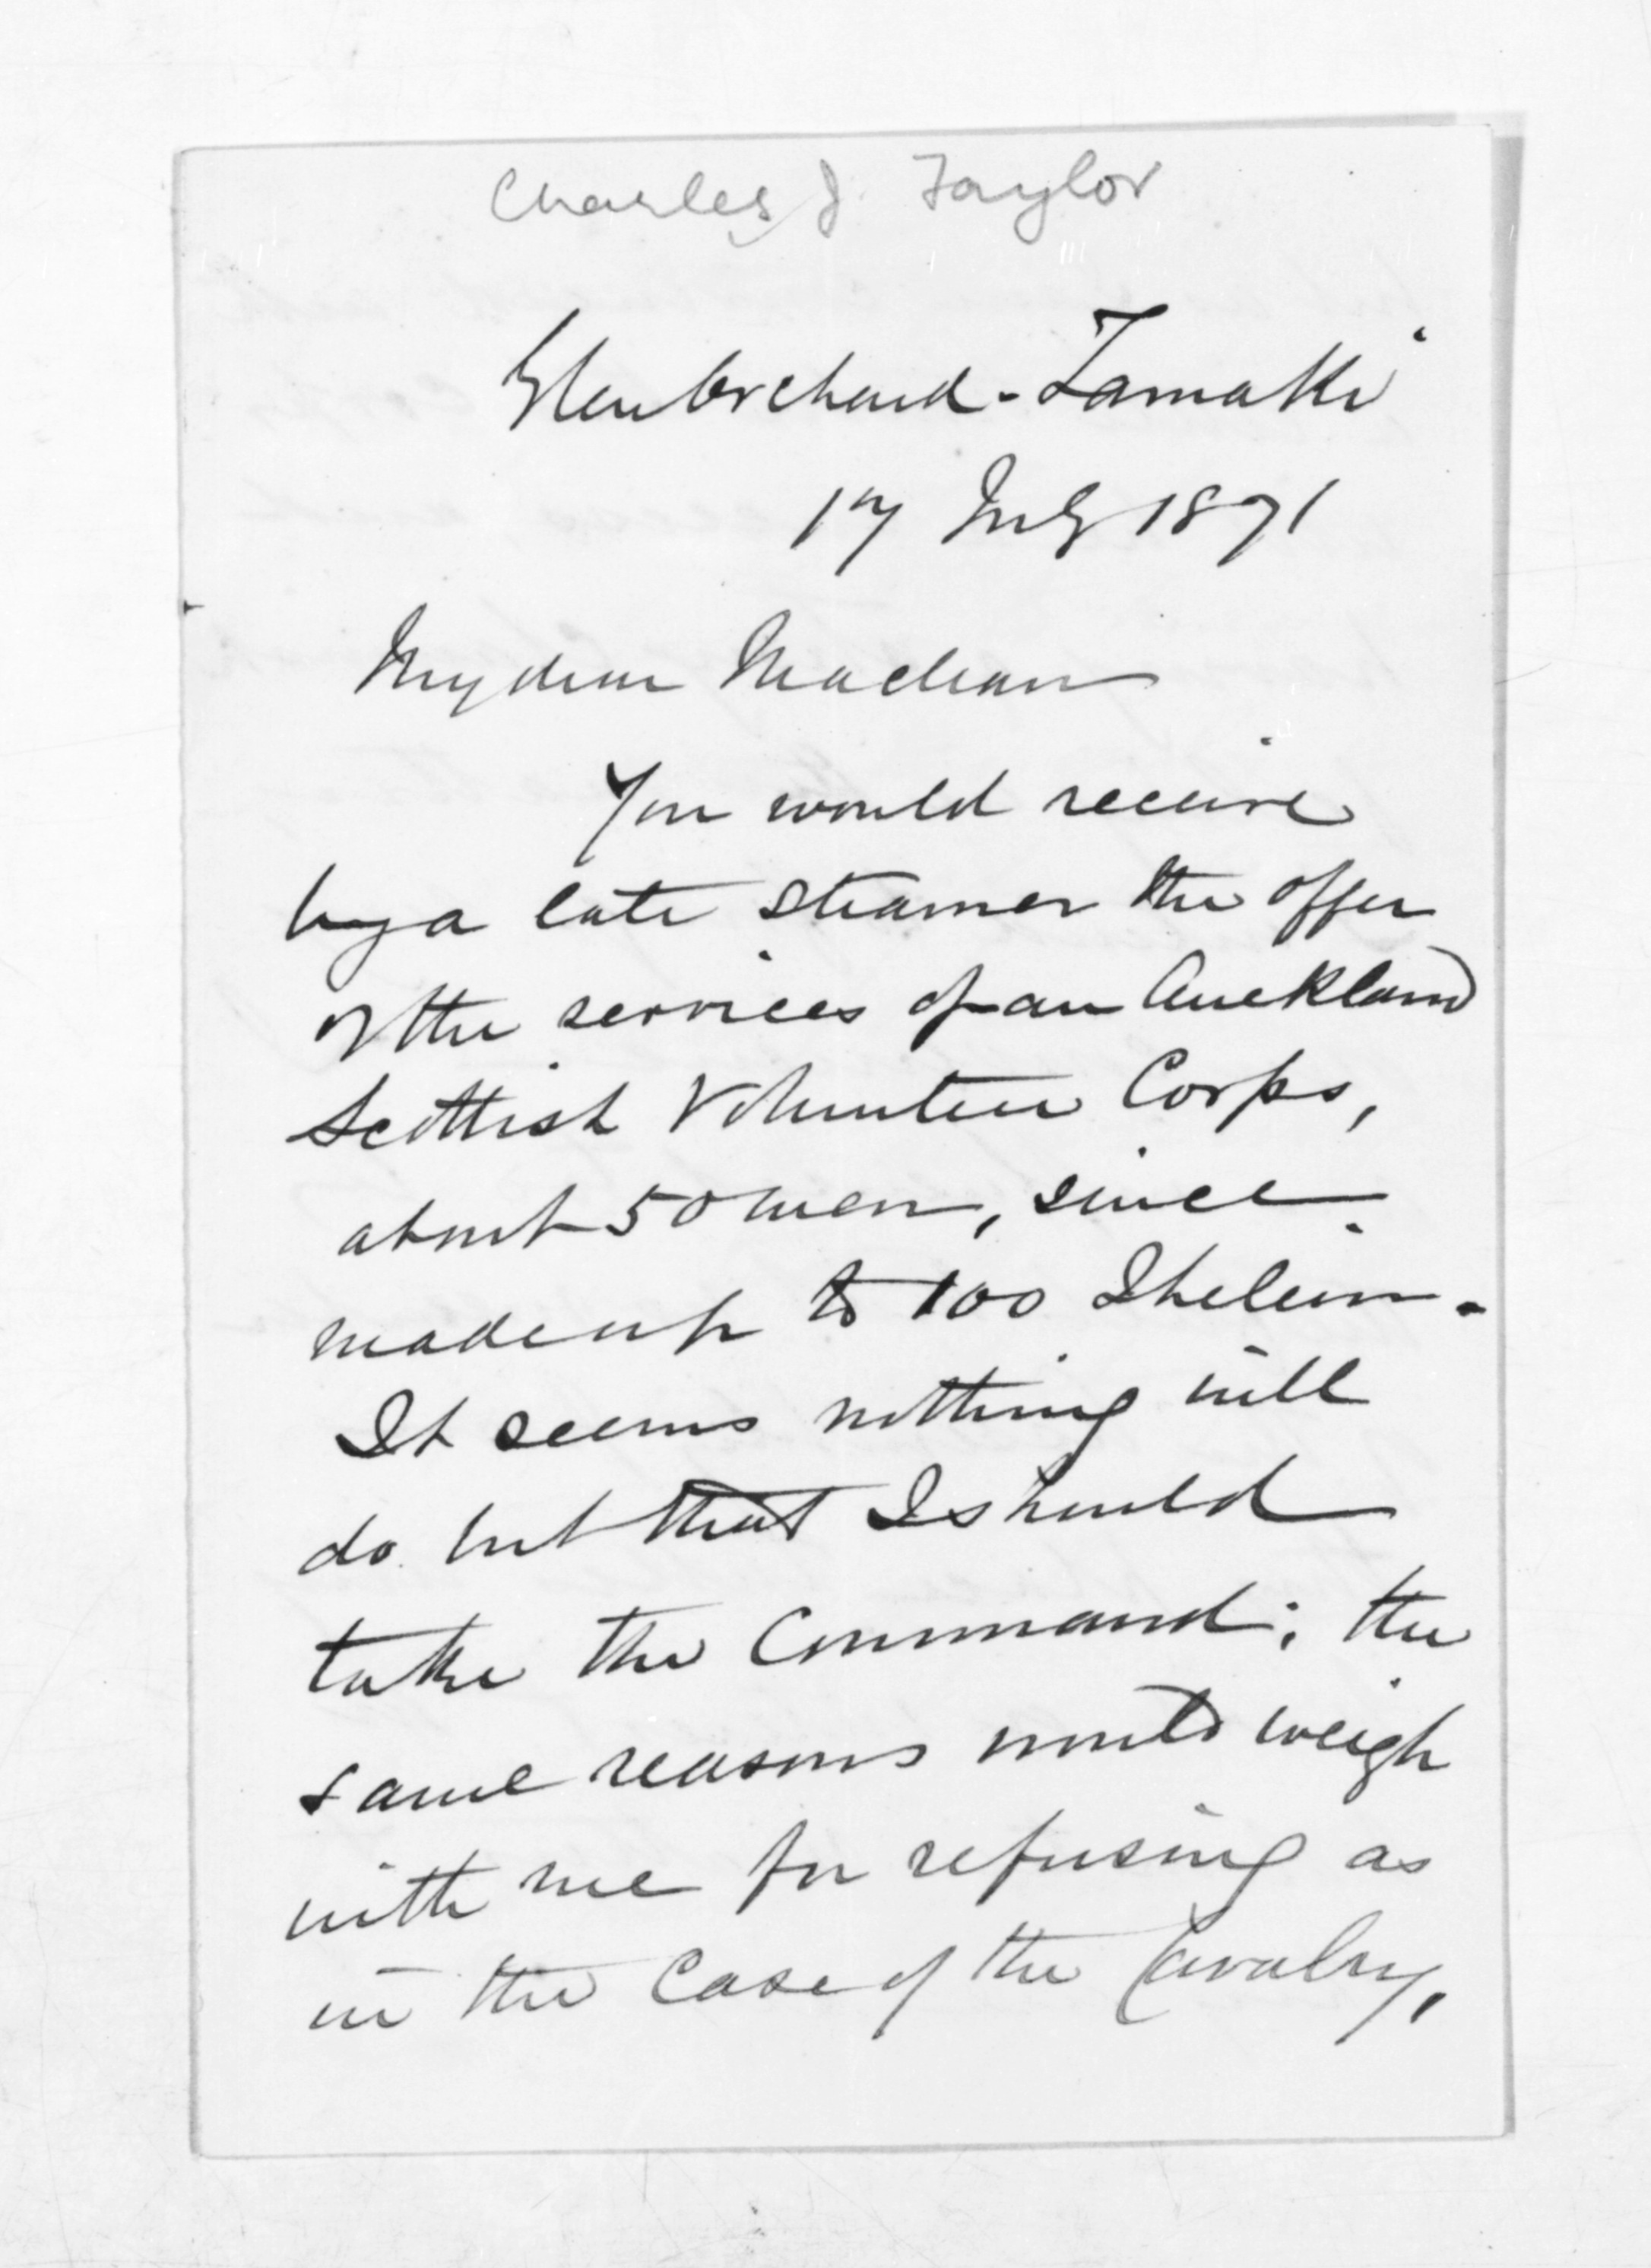 Charles J. Taylor
Glen Orchard - Tamaki
17 July 1871
My dear Maclean
You would receive
by a late steamer the offer
of the services of an Auckland
Scottish Volunteer Corps,
about 50 men, since
made up to 100 I believe.
It seems nothing will
do but that I should
take the Command; the
same reasons would weigh
with me for refusing as
in the Case of the Cavalry,